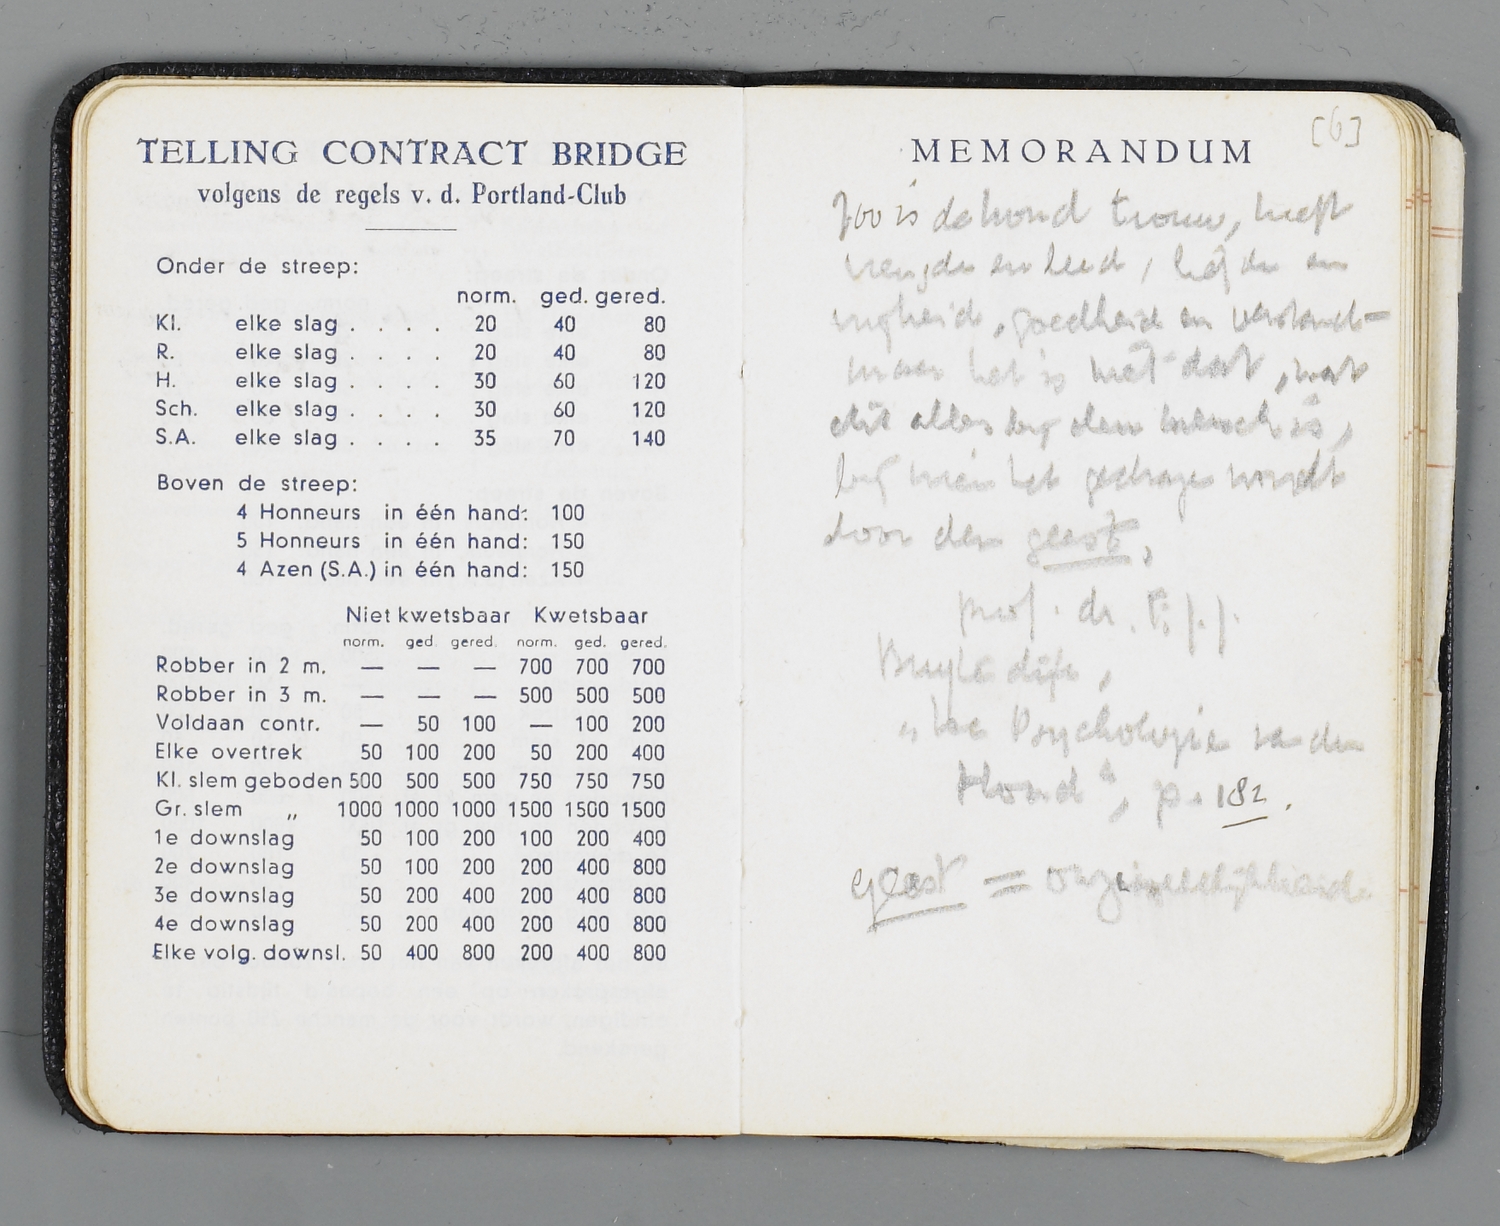 TELLING CONTRACT BRIDGE
volgens de regels v. d. Portland-Club
Onder de streep:
norm. ged. gered.
Kl. elke slag . . . . 20 40 80
R. elke slag . . . . 20 40 80
H. elke slag . . . . 30 60 120
Sch. elke slag . . . . 30 60 120
S.A. elke slag . . . . 35 70 140
Boven de streep:
4 Honneurs in één hand: 100
5 Honneurs in één hand: 150
4 Azen (S.A.) in één hand: 150
Niet kwetsbaar Kwetsbaar
norm. ged. gered. norm. ged. gered.
Robber in 2 m. — — — 700 700 700
Robber in 3 m. — — — 500 500 500
Voldaan contr. — 50 100 — 100 200
Elke overtrek 50 100 200 50 200 400
Kl. slem geboden 500 500 500 750 750 750
Gr. slem „ 1000 1000 1000 1500 1500 1500
1e downslag 50 100 200 100 200 400
2e downslag 50 100 200 200 400 800
3e downslag 50 200 400 200 400 800
4e downslag 50 200 400 200 400 800
Elke volg. downsl. 50 400 800 200 400 800
[6]
MEMORANDUM
Zoo is de hond trouw, heeft
vreugde en leed, liefde en
goedheid en verstand -
maar het is niet dat, wat
dit alles bij den mensch is,
bij wien het gedragen wordt
door den geest,
prof. dr. F. J. J.
Buytendijk,
„De Psychologie van den
Hond", p. 182.
geest = onzienlijkheid